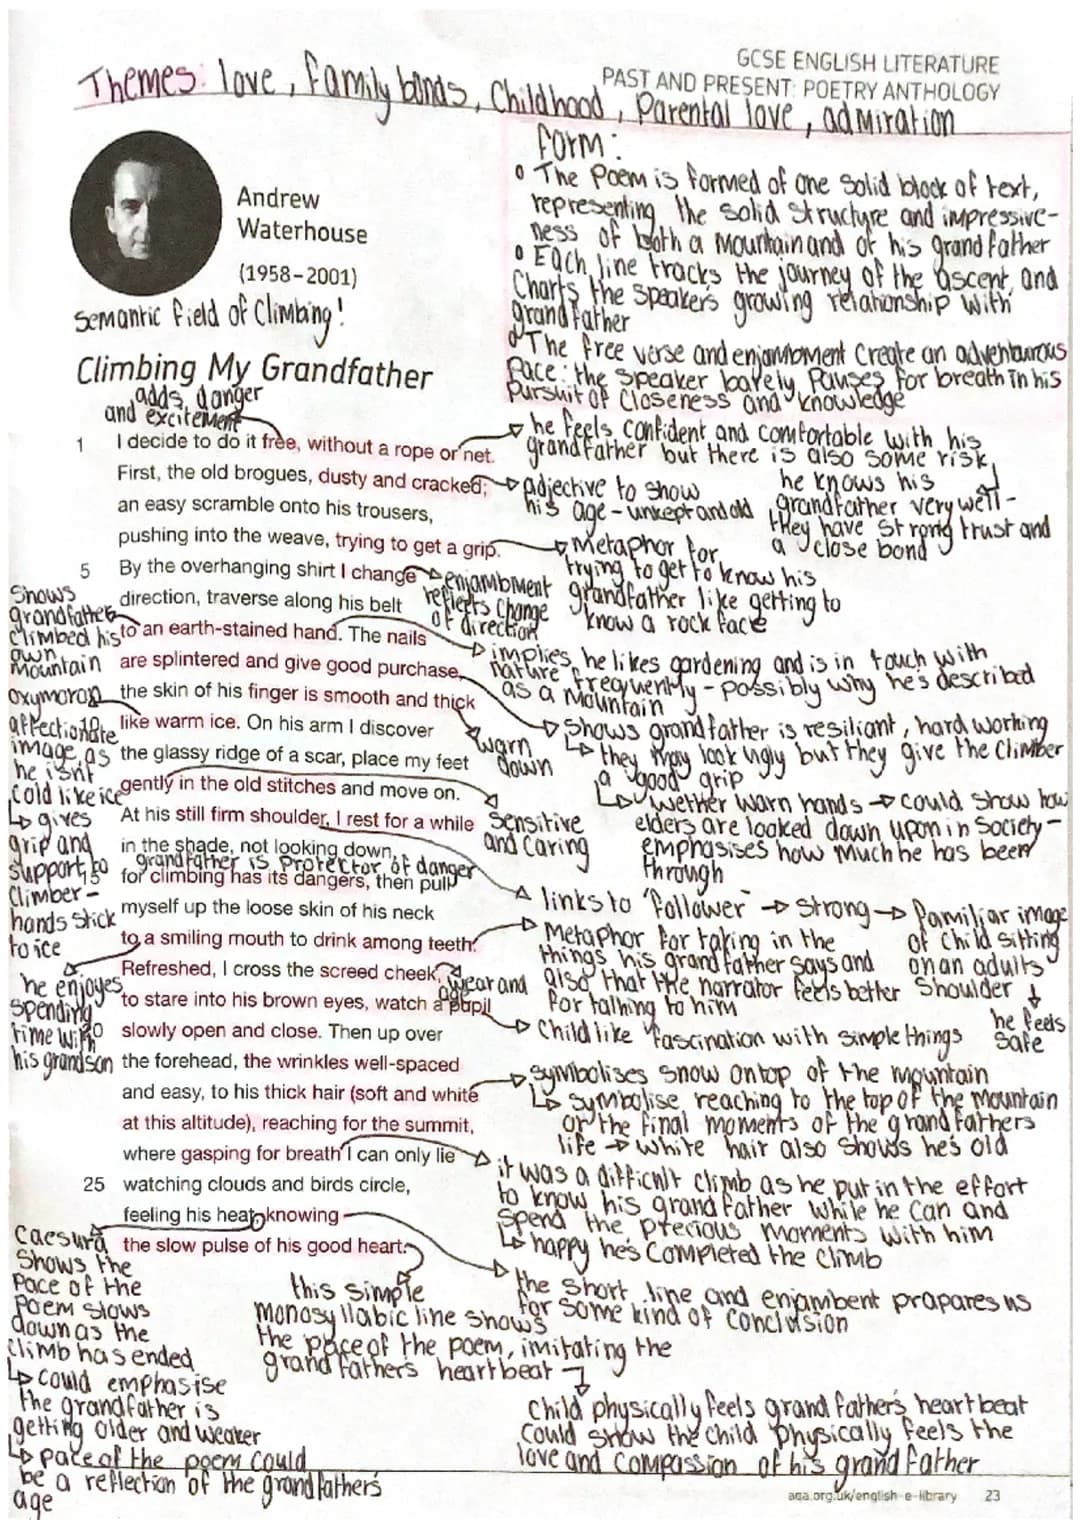 GCSE ENGLISH LITERATURE
PAST AND PRESENT: POETRY ANTHOLOGY
Themes: love, family bonds, Childhood, Parental love, admiration
Andrew
Waterhouse
(1958–2001)
semantic field of Climbing!
Form:
The Poem is formed of one solid block of text,
representing the solid structure and impressive-
ness of both a Mountain and of his grandfather
Each line tracks the journey of the ascent, and
Charts the speakers growing relationship with
grandfather
The free verse and enjambment Create an adventurous
Pace: the speaker barely Pauses for breath in his
Pursuit of Closeness and knowledge
Climbing My Grandfather
adds danger
and excitement
1 I decide to do it free, without a rope or net.
First, the old brogues, dusty and cracked;
an easy scramble onto his trousers,
pushing into the weave, trying to get a grip.
5 By the overhanging shirt I change
direction, traverse along his belt
to an earth-stained hand. The nails
are splintered and give good purchase,
the skin of his finger is smooth and thick
10 like warm ice. On his arm I discover
the glassy ridge of a scar, place my feet
gently in the old stitches and move on.
At his still firm shoulder, I rest for a while
in the shade, not looking down,
grandfather is Protector of danger
15 for climbing has its dangers, then pull
myself up the loose skin of his neck
to a smiling mouth to drink among teeth.
Refreshed, I cross the screed cheek,
to stare into his brown eyes, watch a pupil
20 slowly open and close. Then up over
the forehead, the wrinkles well-spaced
and easy, to his thick hair (soft and white
at this altitude), reaching for the summit,
where gasping for breath I can only lie
25 watching clouds and birds circle,
feeling his heat, knowing
the slow pulse of his good heart.
he feels confident and comfortable with his
grandfather but there is also some risk
he knows his
grandfather very well -
they have strong trust and
a close bond
adjective to show
his age - unkept and old
Metaphor for
trying to get to know his
grandfather like getting to
know a rock face
enjambment
reflects change
of direction
implies he likes gardening and is in touch with
nature frequently - possibly why he's described
as a Mountain
Shows grandfather is resiliant, hard working
they may look ugly but they give the Climber
a good grip
wether warn hands → could show how
elders are looked down upon in Society -
emphasises how Much he has been
through
warn
down
sensitive
and caring
links to 'follower' → strong → familiar image
of child sitting
on an adults
shoulder
he feels
safe
Metaphor for taking in the
things his grandfather says and
also that the narrator feels better
for talking to him
wear and
age
Child like fascination with simple things
symbolises snow on top of the mountain
symbolise reaching to the top of the Mountain
or the final moments of the grandfathers
life → white hair also shows he's old
it was a difficult climb as he put in the effort
to know his grandfather while he can and
spend the precious moments with him
happy he's Completed the climb
the short line and enjambent prapares us
for some kind of Conclusion
Shows
grandfather
climbed his
own
mountain
oxymoron
affectionate
image, as
he isnt
cold like ice
gives
grip and
support to
Climber -
hands stick
to ice
he enjoyes
spending
time with
his grandson
Caesura
shows the
Pace of the
Poem slows
down as the
climb has ended
could emphasise
the grandfather is
getting older and weaker
pace of the poem could
be a reflection of the grandfather's
age
this simple
monosyllabic line shows
the pace of the poem, imitating the
grandfathers heartbeat
child physically feels grandfathers heartbeat
could show the child Physically feels the
love and compassion of his grandfather
aqa.org.uk/english-e-library 23